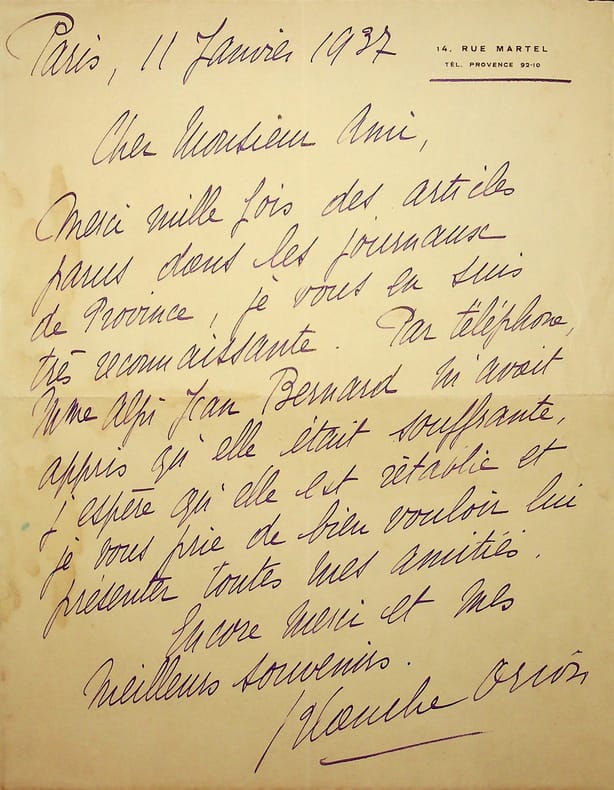 Paris, 11 Janvier 1937
14, RUE MARTEL
TÉL. PROVENCE 92-10
Cher Monsieur Ami,
Merci mille fois des articles
parus dans les journaux
de Province, je vous en suis
très reconnaissante. Par téléphone,
Mme Jean Bernard m'avait
appris qu'elle était souffrante,
j'espère qu'elle est rétablie et
je vous prie de bien vouloir lui
présenter toutes mes amitiés.
Encore merci et mes
meilleurs souvenirs.
Blanche